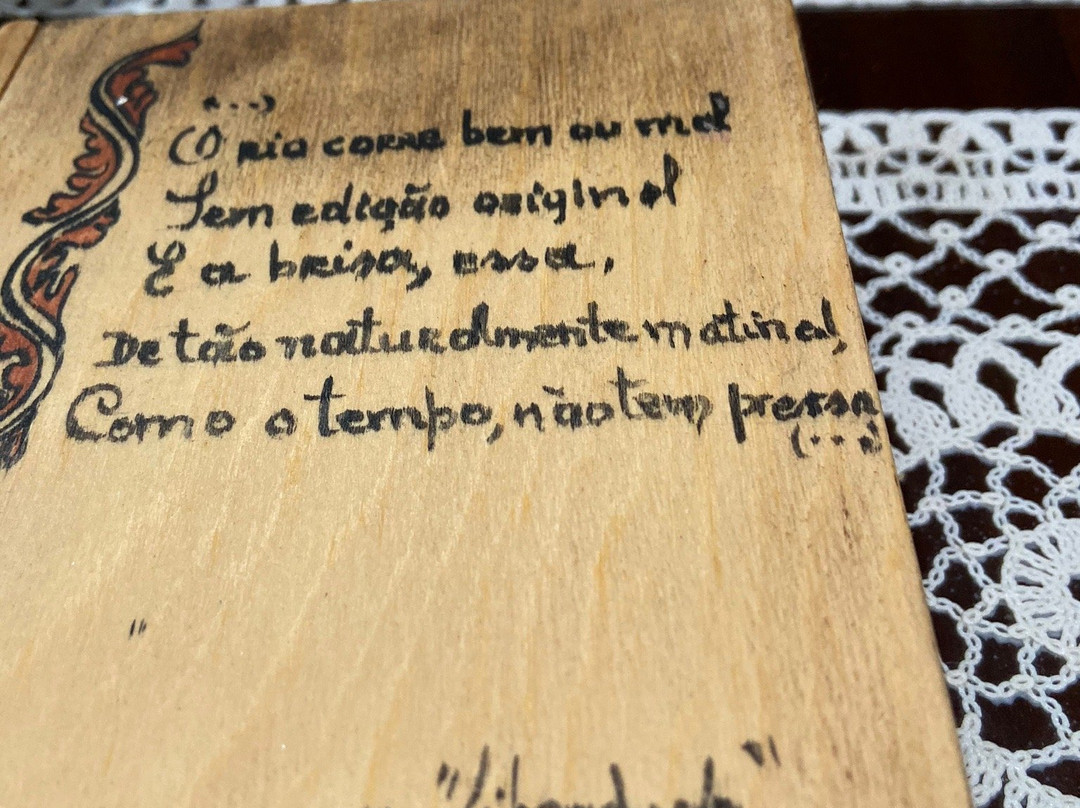 (...)
O rio corre bem ou mal
Sem edição original
E a brisa, essa,
De tão naturalmente matinal,
Como o tempo, não tem pressa
(...)
"
"Liberdade"